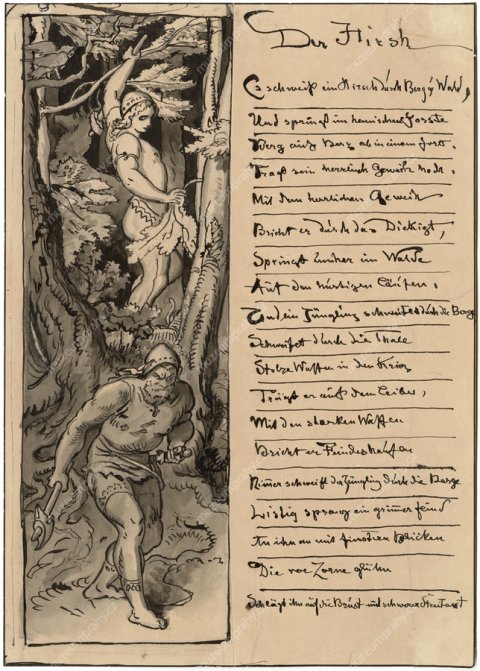 Der Hirsh
Es schweift ein Hirsch durch Berg u Wald,
Und springt im heimischen Forste
Berg auf Berg ab in einem fort.
Trägt sein herrlich Geweih hoch.
Mit dem herrlichen Geweih
Bricht er durch das Dickigt,
Springt umher im Walde
Auf den hurtigen Läufen.
Und ein Jüngling schweifet durch die Berge
Schweifet durch die Thale
Stolze Waffen in den Krieg
Trägt er auf dem Leibe,
Mit den starken Waffen
Bricht er Feindeshaufen
Nimer schweift da Jüngling durch die Berge
Listig sprang ein grimer feind
An ihn an mit finstren Blicken
Die vor Zorne glühn
Schlägt ihn auf die Brust mit schwerer Streitaxt